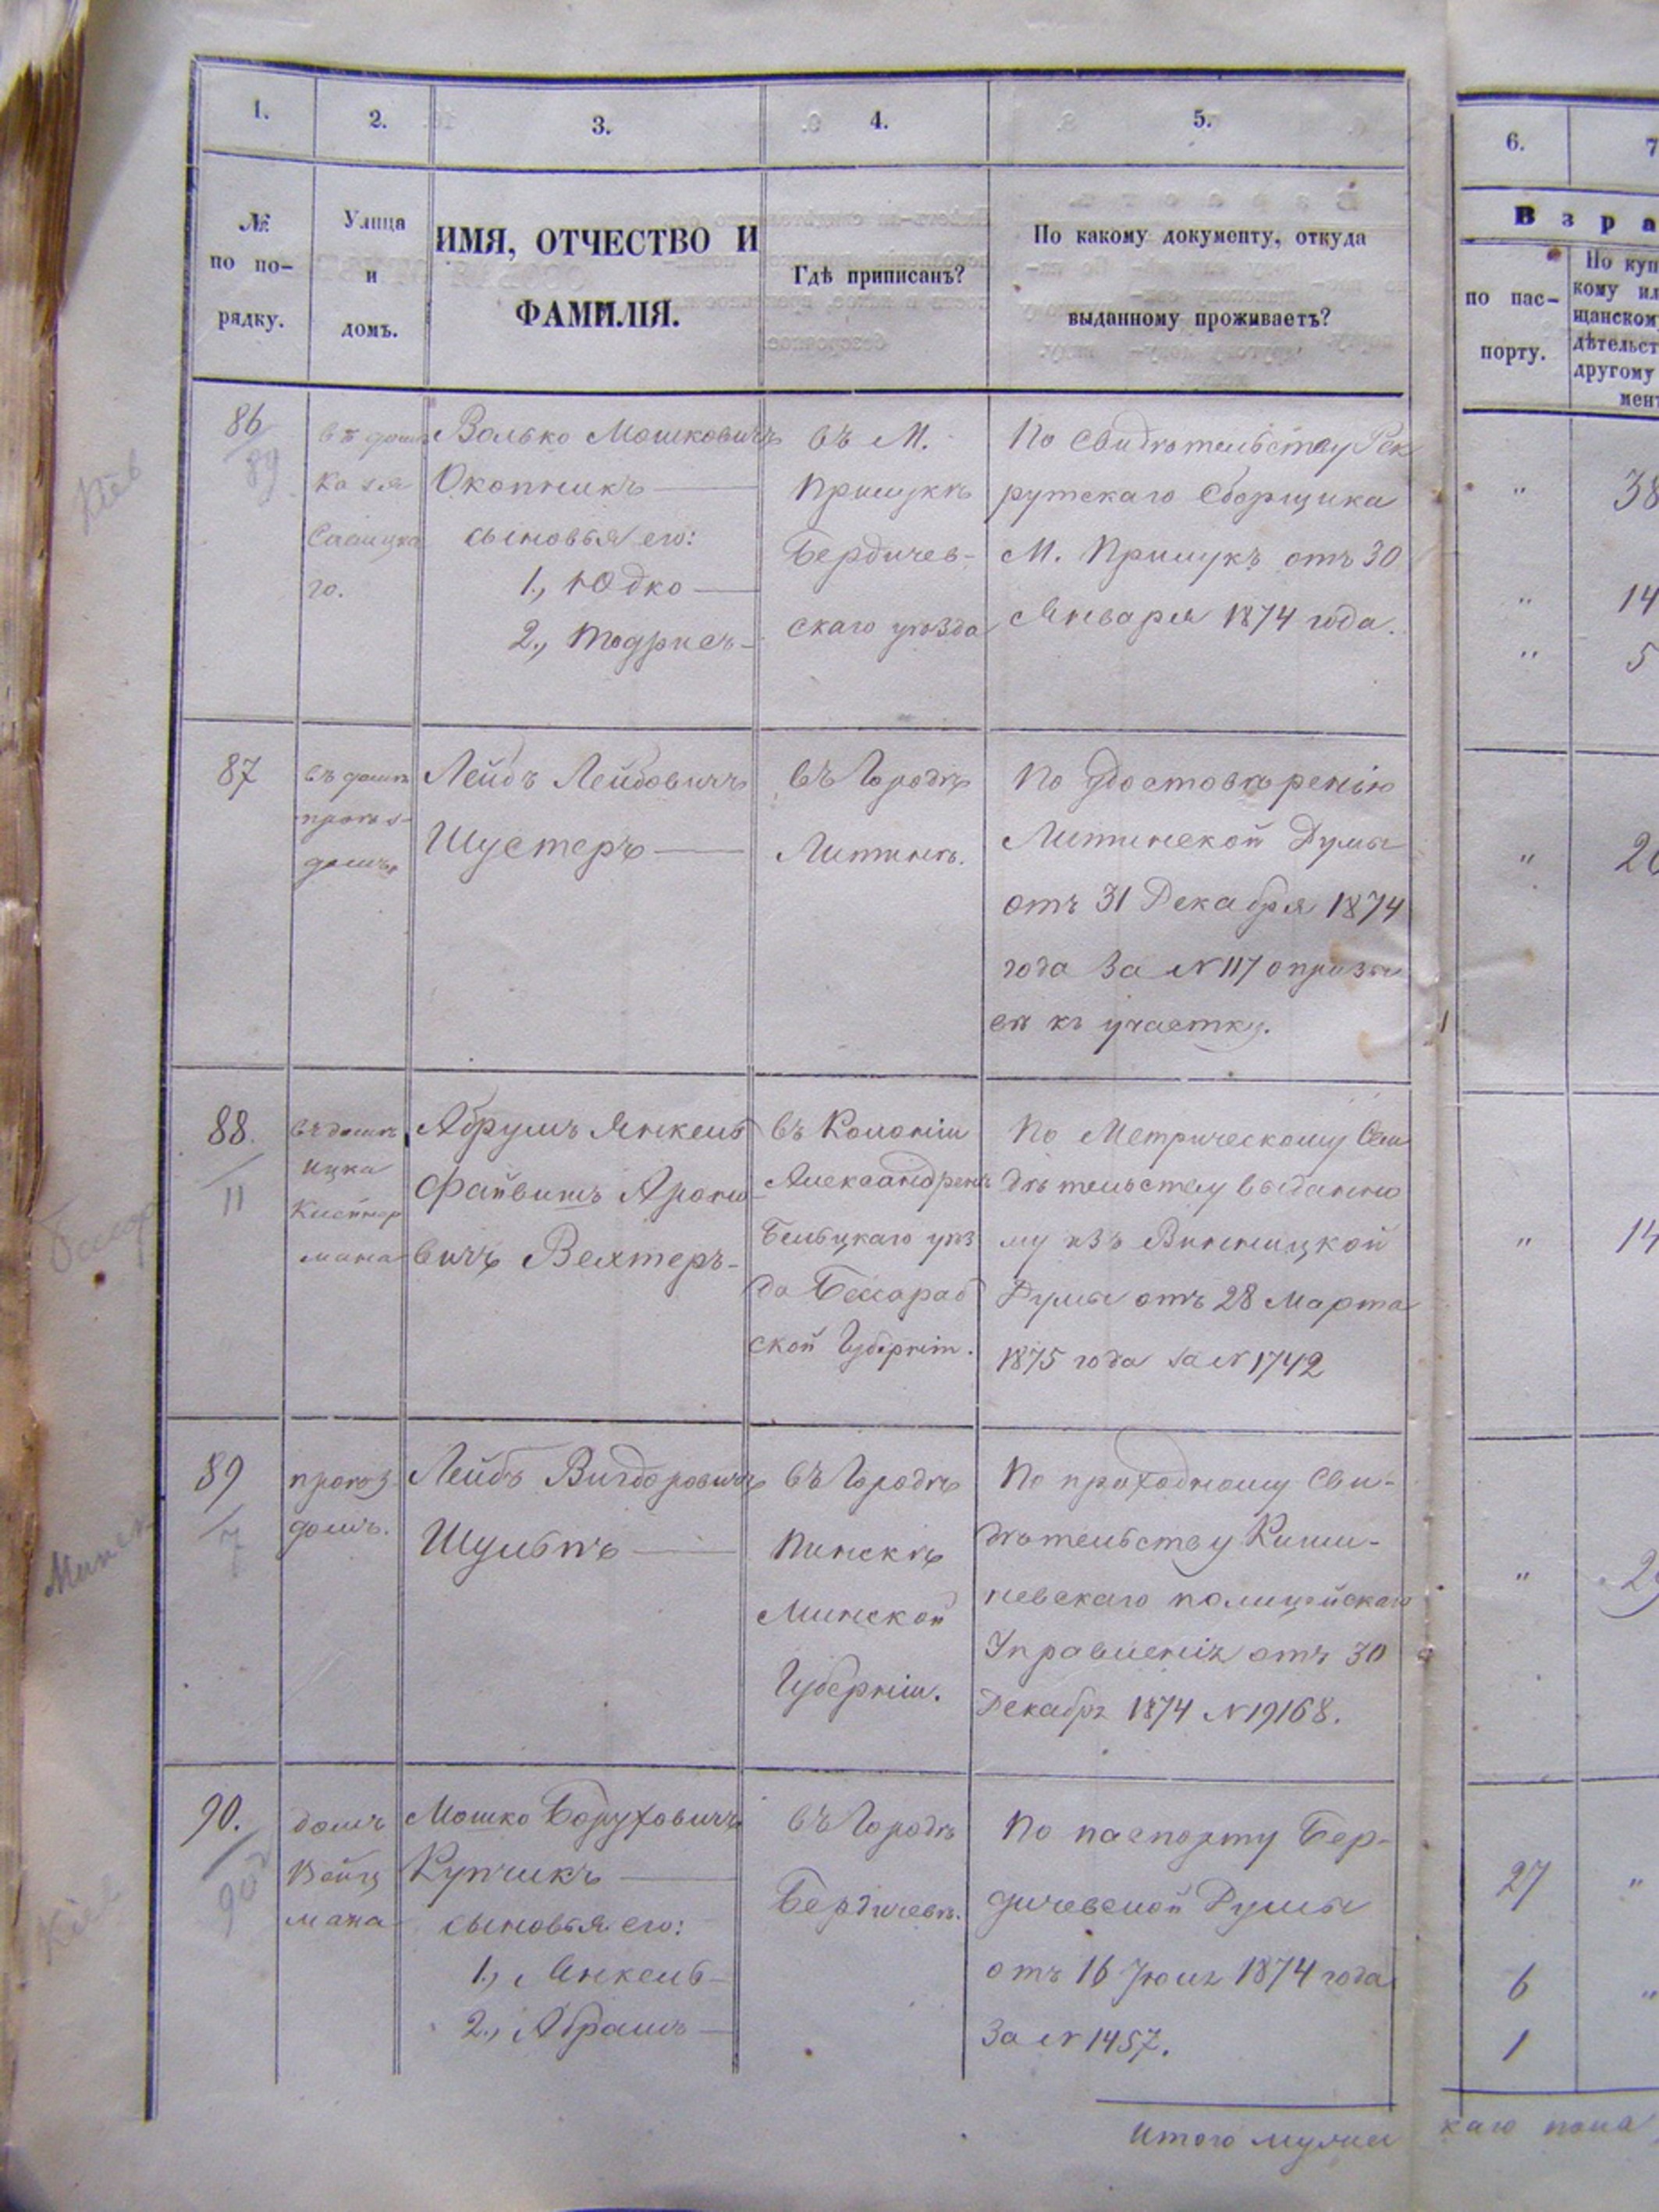 1. 2. 3. 4. 5. 6. 7
№ по по-
рядку.
Улица
и
домъ.
ИМЯ, ОТЧЕСТВО И
ФАМИЛІЯ.
Гдѣ приписанъ?
По какому документу, откуда
выданному проживаетъ?
Возра
по пас-
порту.
По куп
кому ил
щанском
дѣтельст
другому
мент
Кіев
86
89
въ домѣ
Саницка
го.
Волько Мошковичъ
Окопникъ
сыновья его:
1., Юдко
2., Тодрисъ
въ М.
Прилукѣ
Бердичев-
скаго уѣзда
По Свидѣтельству Рек
рутскаго Сборщика
М. Прилукъ отъ 30
Января 1874 года.
" 38
" 14
" 5
87
въ домѣ
проѣз-
домъ
Лейбъ Лейбовичъ
Шустеръ
въ Городѣ
Литинѣ.
По удостовѣренію
Литинской Думы
отъ 31 Декабря 1874
года за № 117 о призы
вѣ къ участку.
"
Бессар
88.
11
въ домѣ
Ицка
мана
Абрумъ Янкель
Файвишъ Ароно
вичъ Вехтеръ
въ Колоніи
Александрень
Бельцкаго уѣз
да Бессараб
ской Губерніи.
По Метрическому Сви
дѣтельству выданно
му изъ Винницкой
Думы отъ 28 Марта
1875 года за № 1742
" 14
Минск
89
7
проѣз
домъ.
Лейбъ Вигдоровичъ
Шульпъ
въ Городѣ
Пинскѣ
Минской
Губерніи.
По проходному Сви-
дѣтельству Киши-
невскаго полицейскаго
Управленія отъ 30
Декабря 1874 № 19168.
"
Кіев
90.
902
домъ
Вейц
мана
Мошко Боруховичъ
Купчикъ
сыновья его:
1., Янкель
2., Абрамъ
въ Городѣ
Бердичевѣ.
По паспорту Бер-
дичевской Думы
отъ 16 Іюля 1874 года
За № 1457.
27 "
6 "
1
Итого мужес каго пола